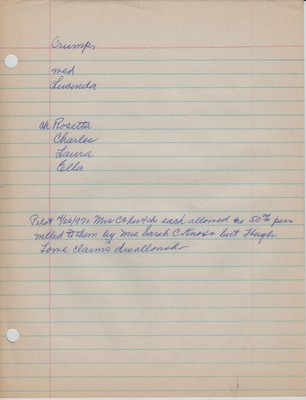 Crump,
med
Lucinda
ch Rosetta
Charles
Laura
Ella
7/26/1870 Mrs C & her 4 ch each allowed the 50% per
willed to them by Mrs Sarah C Knox but Hugh
Lowe claims disallowed